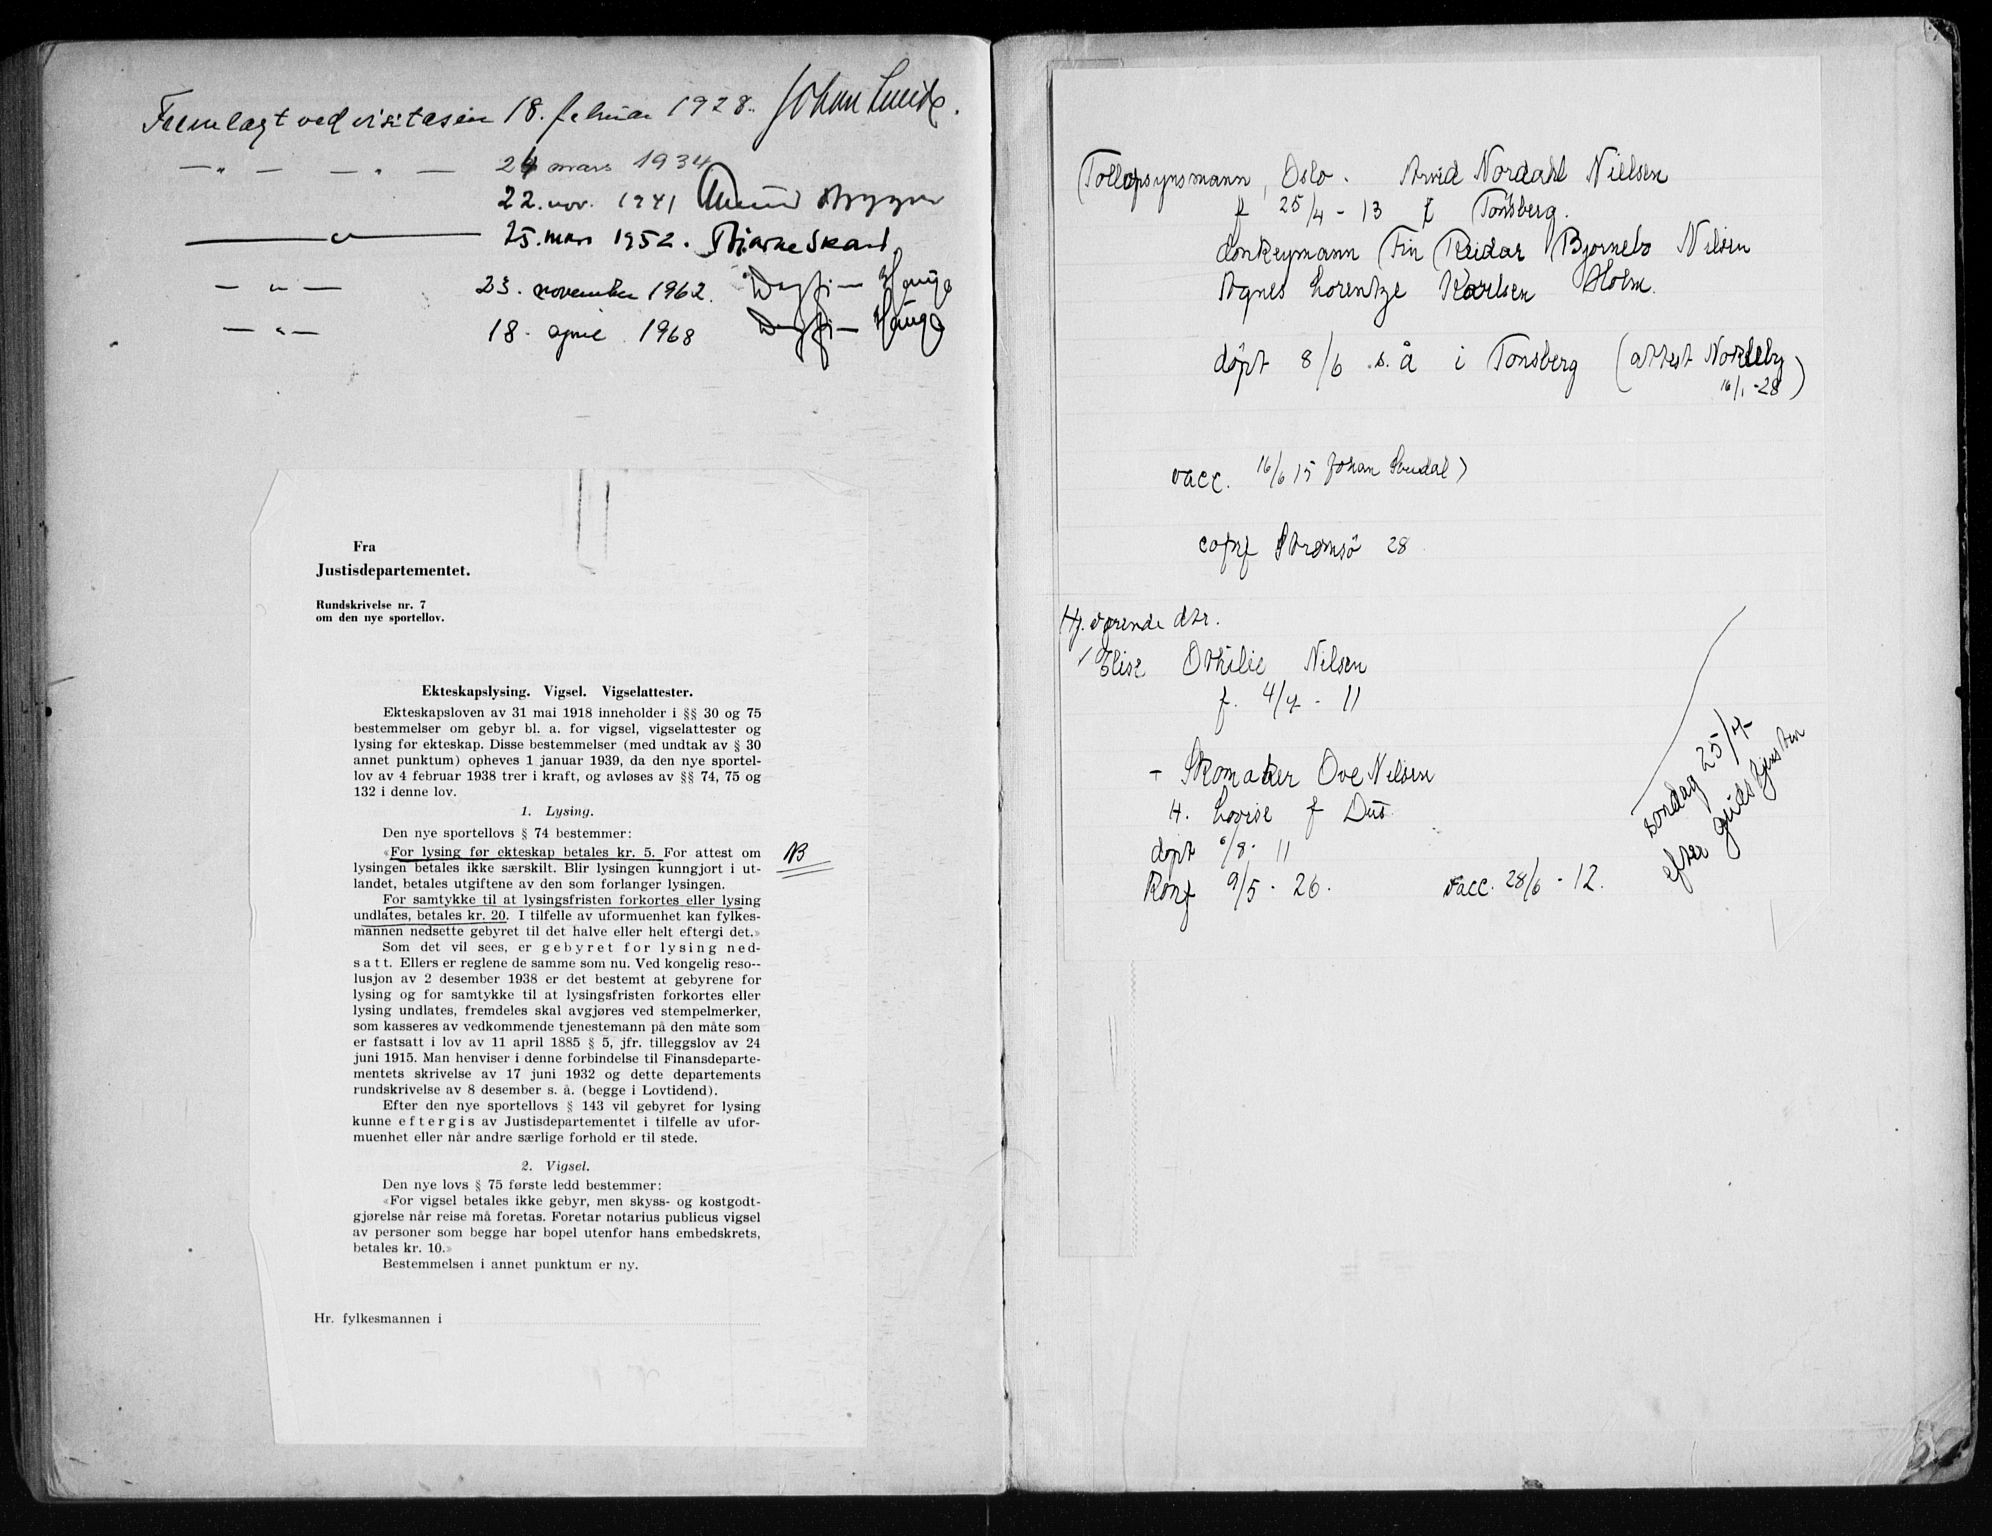 Fremlagt ved visitasen 18. februar 1928. Johan Lunde.
— " — — " — 24 mars 1934
22. nov. 1941
— " — 25. mars 1952. Bjarne Skard.
— " — 23. november 1962. Dagfinn Hauge
— " — 18. april 1968 Dagfinn Hauge
Fra
Justisdepartementet.
Rundskrivelse nr. 7
om den nye sportellov.
Ekteskapslysing. Vigsel. Vigselattester.
Ekteskapsloven av 31 mai 1918 inneholder i §§ 30 og 75
bestemmelser om gebyr bl. a. for vigsel, vigselattester og
lysing før ekteskap. Disse bestemmelser (med undtak av § 30
annet punktum) opheves 1 januar 1939, da den nye sportel-
lov av 4 februar 1938 trer i kraft, og avløses av §§ 74, 75 og
132 i denne lov.
1. Lysing.
Den nye sportellovs § 74 bestemmer:
«For lysing før ekteskap betales kr. 5. For attest om
NB
lysingen betales ikke særskilt. Blir lysingen kunngjort i ut-
landet, betales utgiftene av den som forlanger lysingen.
For samtykke til at lysingsfristen forkortes eller lysing
undlates, betales kr. 20. I tilfelle av uformuenhet kan fylkes-
mannen nedsette gebyret til det halve eller helt eftergi det.»
Som det vil sees, er gebyret for lysing ned-
satt. Ellers er reglene de samme som nu. Ved kongelig reso--
lusjon av 2 desember 1938 er det bestemt at gebyrene for
lysing og for samtykke til at lysingsfristen forkortes eller
lysing undlates, fremdeles skal avgjøres ved stempelmerker,
som kasseres av vedkommende tjenestemann på den måte som
er fastsatt i lov av 11 april 1885 § 5, jfr. tilleggslov av 24
juni 1915. Man henviser i denne forbindelse til Finansdeparte-
mentets skrivelse av 17 juni 1932 og dette departements
rundskrivelse av 8 desember s. å. (begge i Lovtidend).
Efter den nye sportellovs § 143 vil gebyret for lysing
kunne eftergis av Justisdepartementet i tilfelle av ufor-
muenhet eller når andre særlige forhold er til stede.
2. Vigsel.
Den nye lovs § 75 første ledd bestemmer:
«For vigsel betales ikke gebyr, men skyss- og kostgodt-
gjørelse når reise må foretas. Foretar notarius publicus vigsel
av personer som begge har bopel utenfor hans embedskrets,
betales kr. 10.»
Bestemmelsen i annet punktum er ny.
Hr. fylkesmannen i
Tollopsynsmann, Oslo. Arvid Nordahl Nielsen
f 25/4 - 13 i Tønsberg.
donkeymann Fin Reidar Bjørnebo Nilsen
Agnes Lorentze Karlsen Holm.
døpt 8/6 s. å i Tønsberg (attest Nordby
16/1 -28)
vacc. 16/6 15 Johan
Strømsö 28
Hj. værende dtr.
Elise Othilie Nilsen
f. 4/7 - 11
- Skomaker Ove Nilsen
H. Lovise f Dus
døpt 6/8 - 11
Konf 9/5 - 26. vacc. 28/6 - 12.
søndag 25/7
efter gudstjenesten